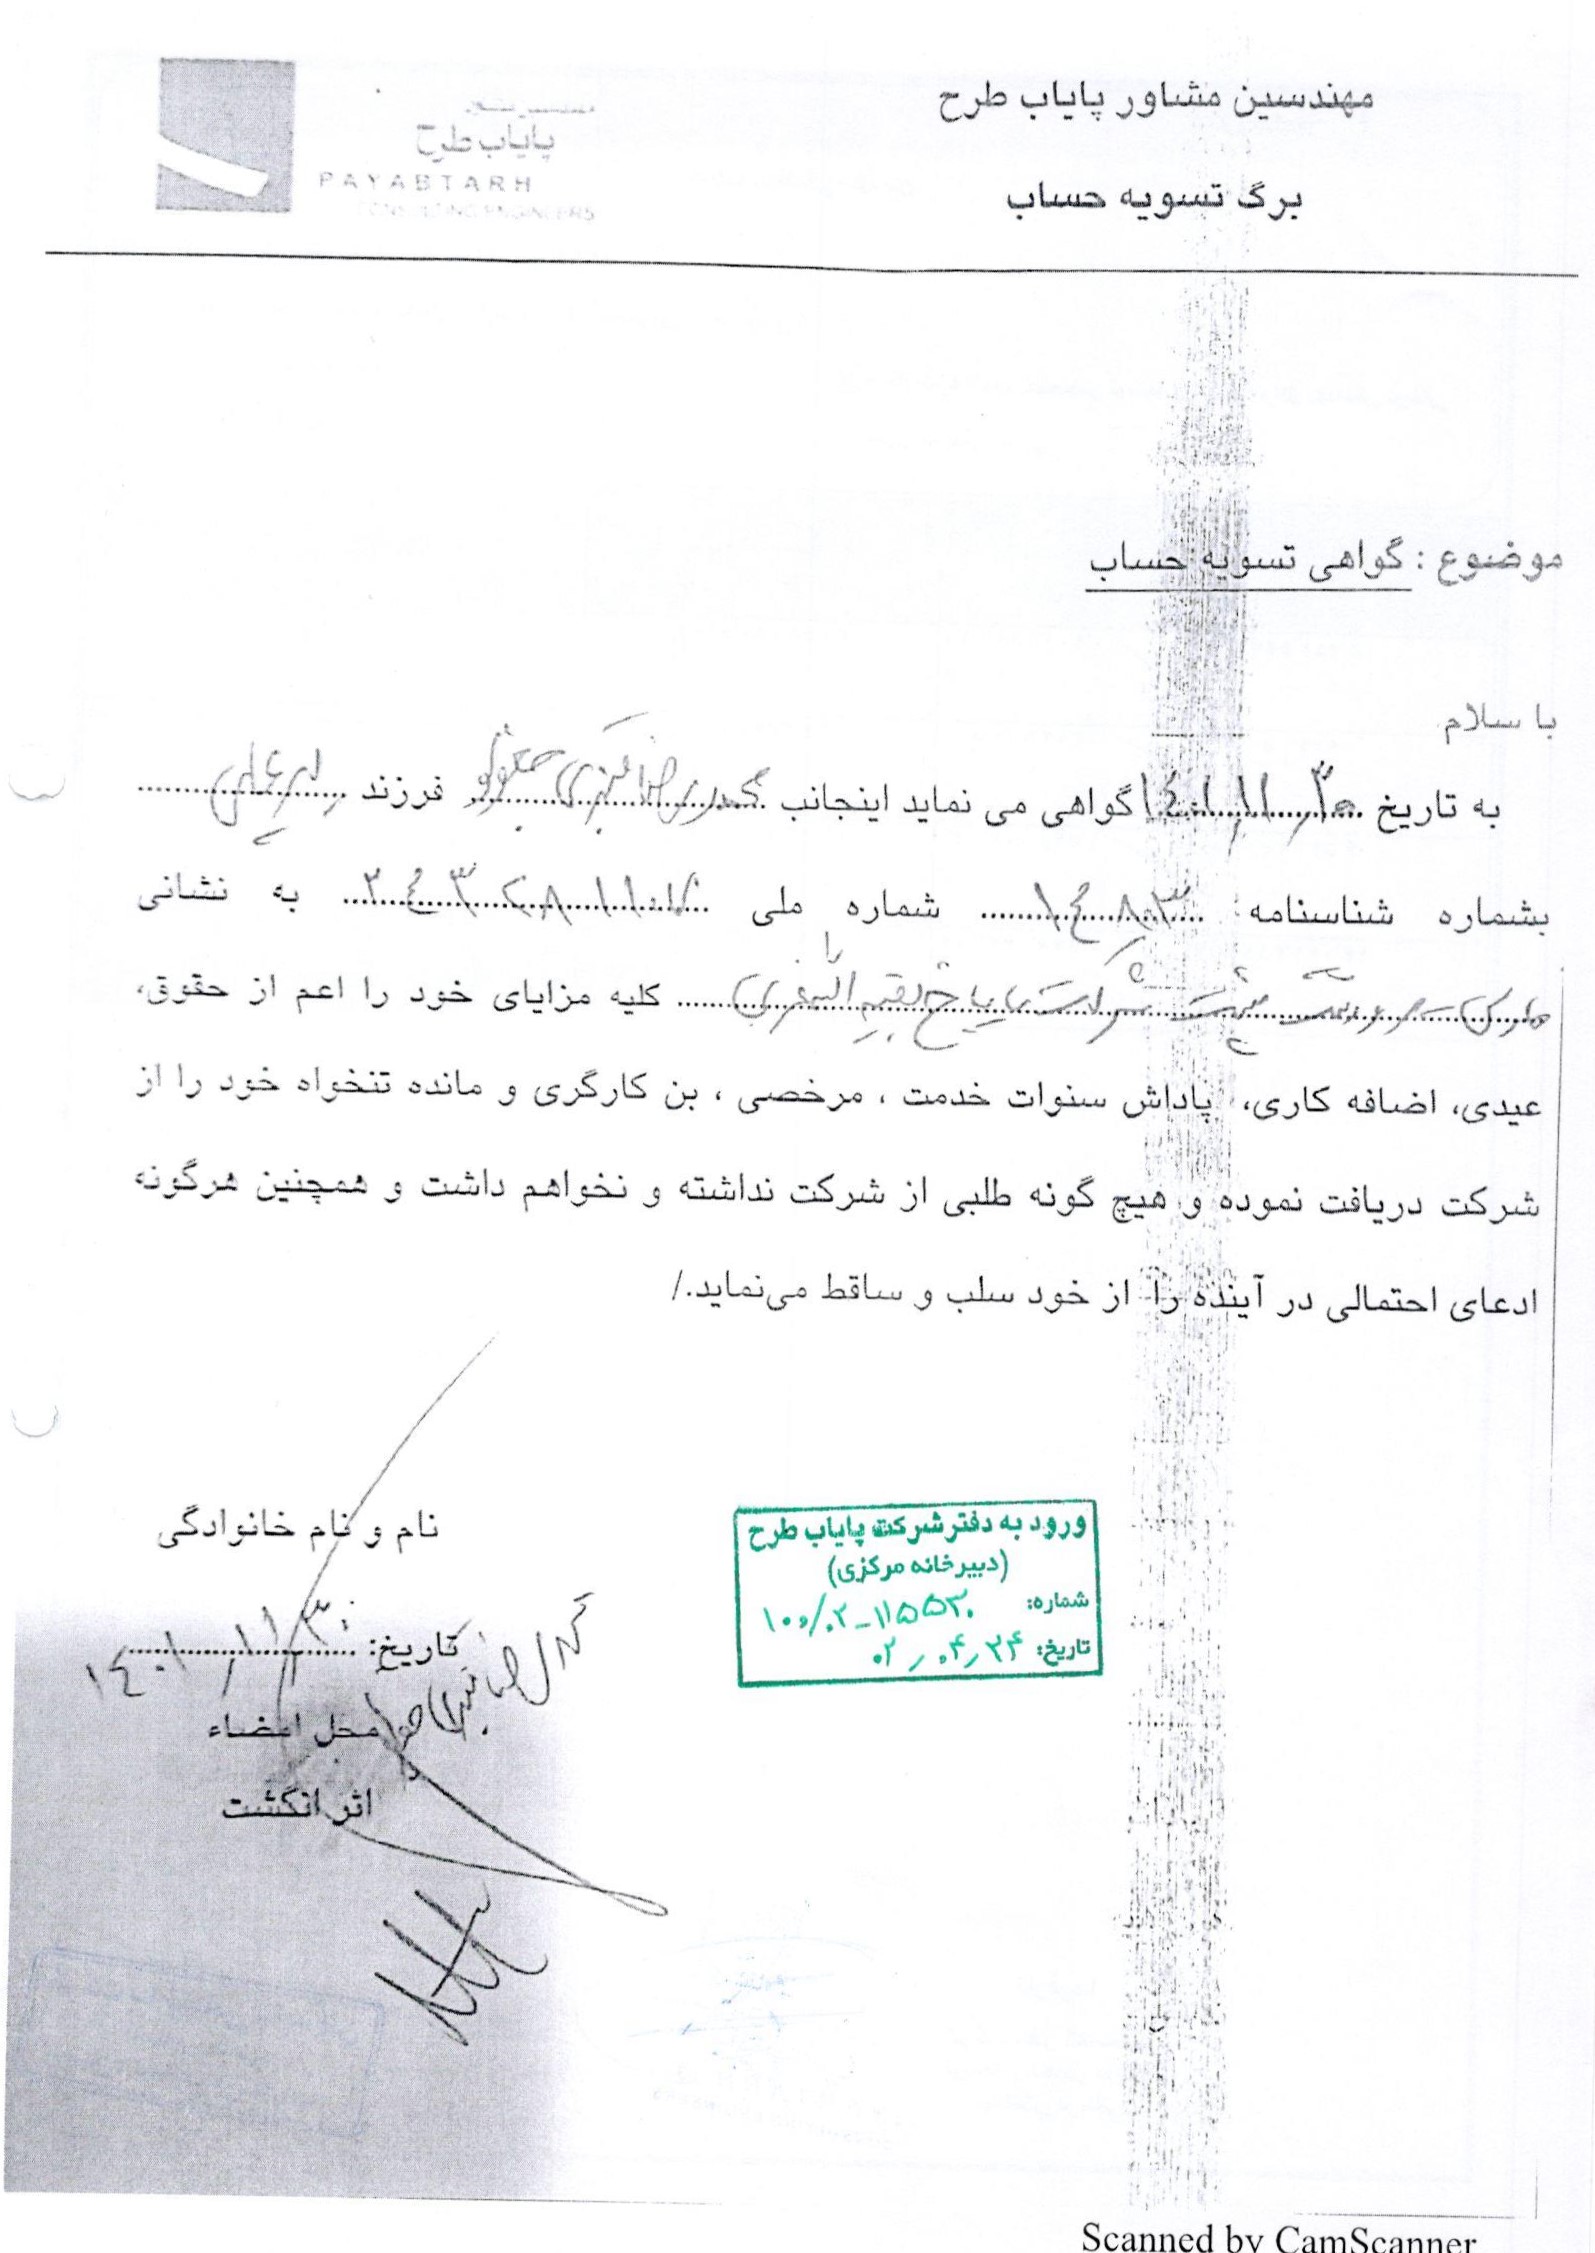 مهندسین مشاور پایاب طرح
برگ تسویه حساب
پایاب طرح
PAYABTARH
CONSULTING ENGINEERS
موضوع : گواهی تسویه حساب
با سلام
به تاریخ ۱۴۰۱/۱۱/۳۰ گواهی می نماید اینجانب فرزند
بشماره شناسنامه: شماره ملی به نشانی
کلیه مزایای خود را اعم از حقوق،
عیدی، اضافه کاری، پاداش سنوات خدمت ، مرخصی ، بن کارگری و مانده تنخواه خود را از
شرکت دریافت نموده و هیچ گونه طلبی از شرکت نداشته و نخواهم داشت و همچنین هرگونه
ادعای احتمالی در آینده را از خود سلب و ساقط می‌نماید./
نام و نام خانوادگی
تاریخ: ۱۴۰۱/۱۱/۳۰
محل امضاء
اثر انگشت
ورود به دفتر شرکت پایاب طرح
(دبیرخانه مرکزی)
شماره: ۱۰۰/۰۲-۱۱۵۵۳۰
تاریخ: ۰۲/۰۴/۲۴
Scanned by CamScanner